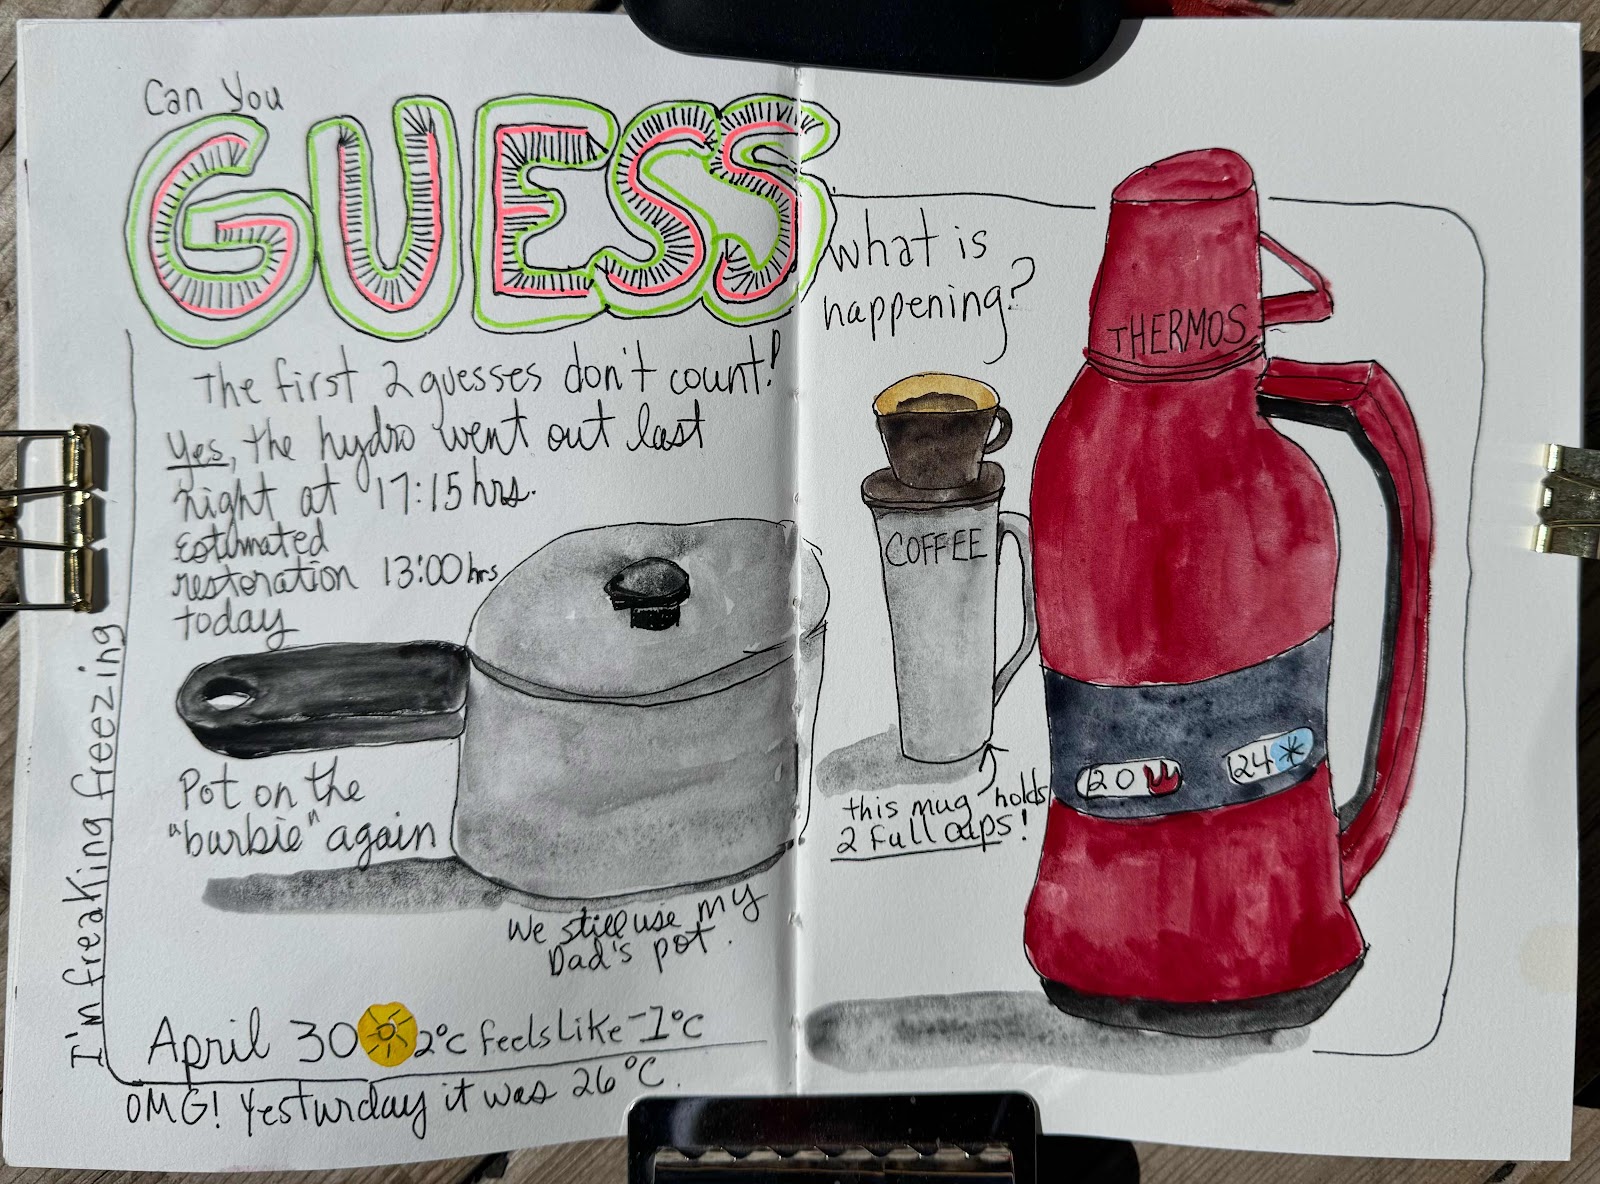 Can You
GUESS
what is
happening?
The first 2 guesses don't count!
Yes, the hydro went out last
night at 17:15 hrs.
Estimated
restoration 13:00 hrs
today
Pot on the
"burbie" again
We still use my
Dad's pot.
I'm freaking freezing
April 30 2°C feels like -1°C
OMG! Yesturday it was 26°C.
COFFEE
this mug holds
2 full cups!
THERMOS
20
24